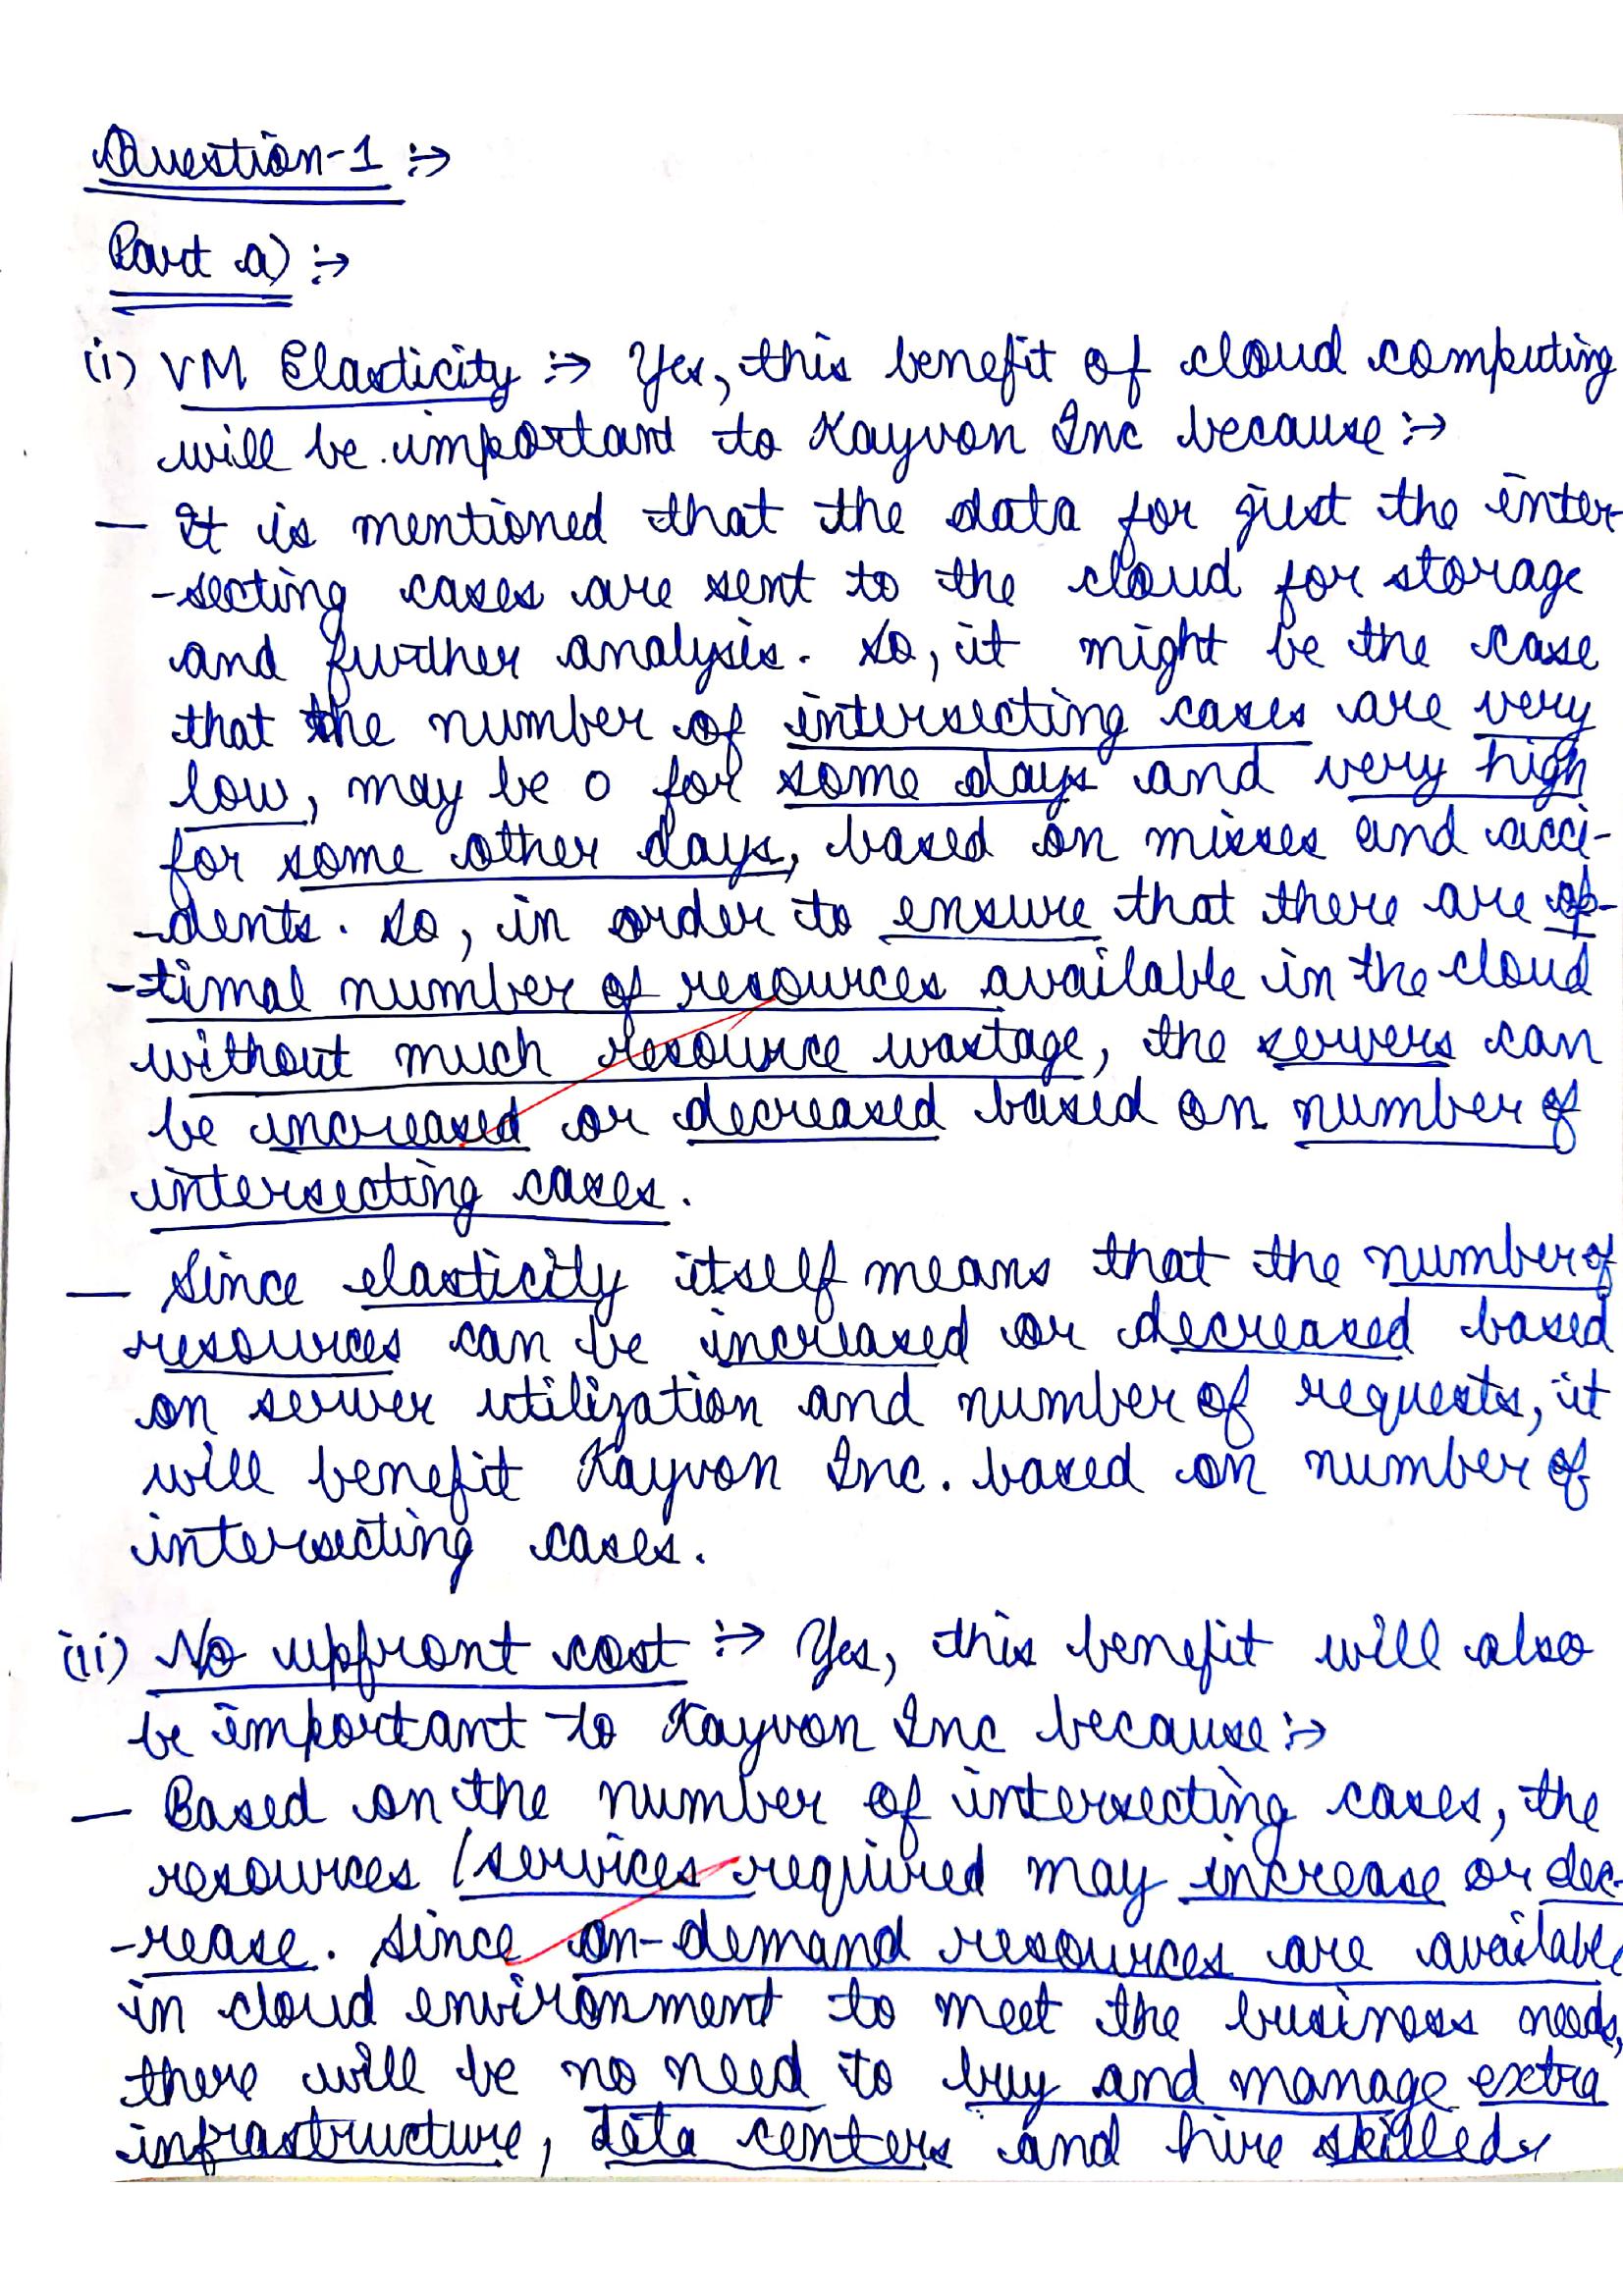 Question-1 :→
Part a) :→
(i) VM Elasticity :→ Yes, this benefit of cloud computing
will be important to Kayvon Inc because :→
— It is mentioned that the data for just the inter-
-secting cases are sent to the cloud for storage
and further analysis. So, it might be the case
that the number of intersecting cases are very
low, may be 0 for some days and very high
for some other days, based on misses and acci-
-dents. So, in order to ensure that there are op-
-timal number of resources available in the cloud
without much resource wastage, the servers can
be increased or decreased based on number of
intersecting cases.
— Since elasticity itself means that the number of
resources can be increased or decreased based
on server utilization and number of requests, it
will benefit Kayvon Inc. based on number of
intersecting cases.
(ii) No upfront cost :→ Yes, this benefit will also
be important to Kayvon Inc because :→
— Based on the number of intersecting cases, the
resources / services required may increase or dec-
-rease. Since on-demand resources are available
in cloud environment to meet the business needs,
there will be no need to buy and manage extra
infrastructure, data centers and hire skilled